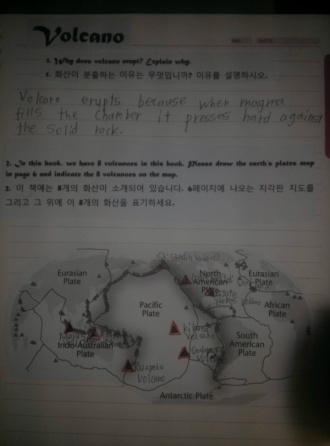 Volcano
1. Why does volcano erupt? Explain why.
1. 화산이 분출하는 이유는 무엇입니까? 이유를 설명하시오.
Volcano erupts because when magma
fills the chamber it presses hard against
the solid rock.
2. In this book, we have 8 volcanoes in this book. Please draw the earth's plates map
in page 6 and indicate the 8 volcanoes on the map.
2. 이 책에는 8개의 화산이 소개되어 있습니다. 6페이지에 나오는 지각판 지도를
그리고 그 위에 이 8개의 화산을 표기하세요.
Eurasian
Plate
North
American
Plate
Eurasian
Plate
Pacific
Plate
African
Plate
Indo-Australian
Plate
South
American
Plate
Volcano
Ruapehu
Volcano
Antarctic Plate